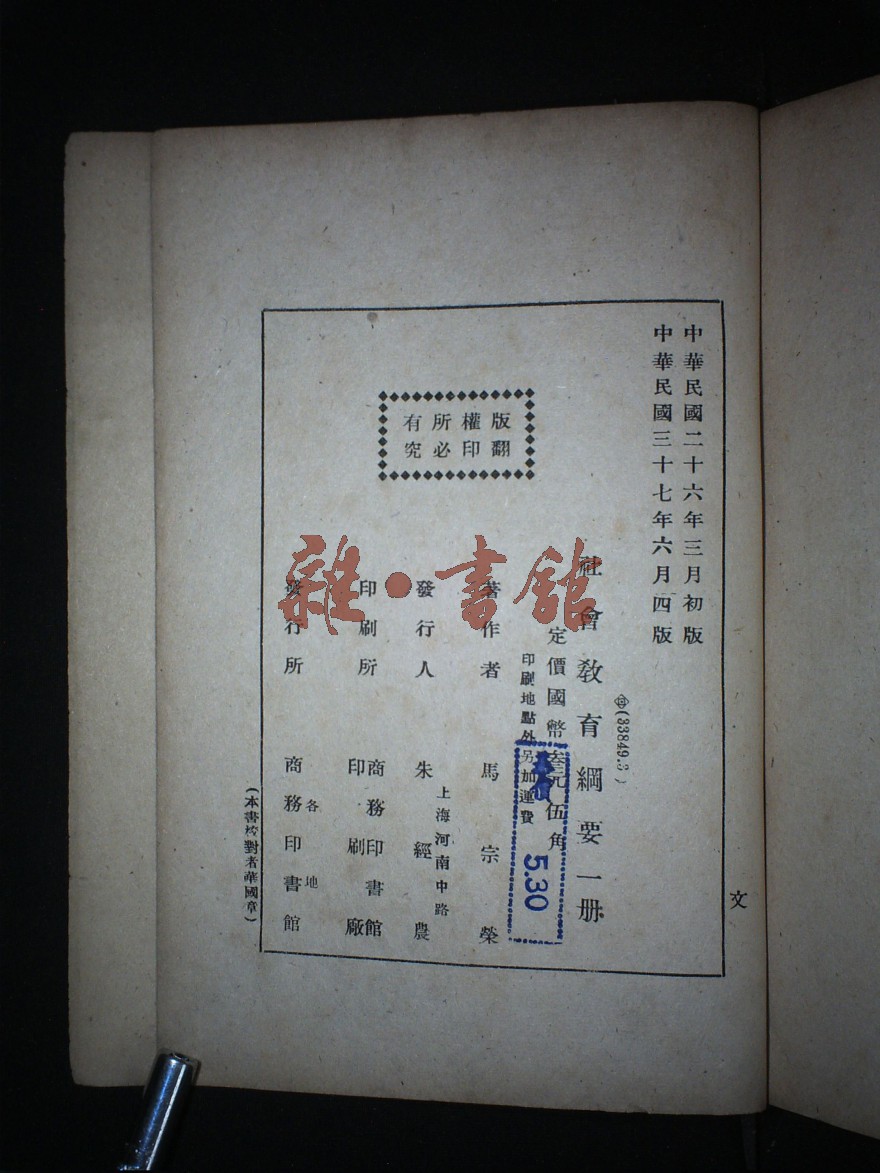 中華民國二十六年三月初版
中華民國三十七年六月四版
(33849.3)
社會教育綱要一册
定價國幣叁元伍角
印刷地點外另加運費
5.30
版權所有
翻印必究
著作者 馬宗榮
發行人 朱經農
上海河南中路
印刷所 商務印書館
印刷廠
發行所 商務印書館
各地
(本書校對者華國章)
文
雜·書館